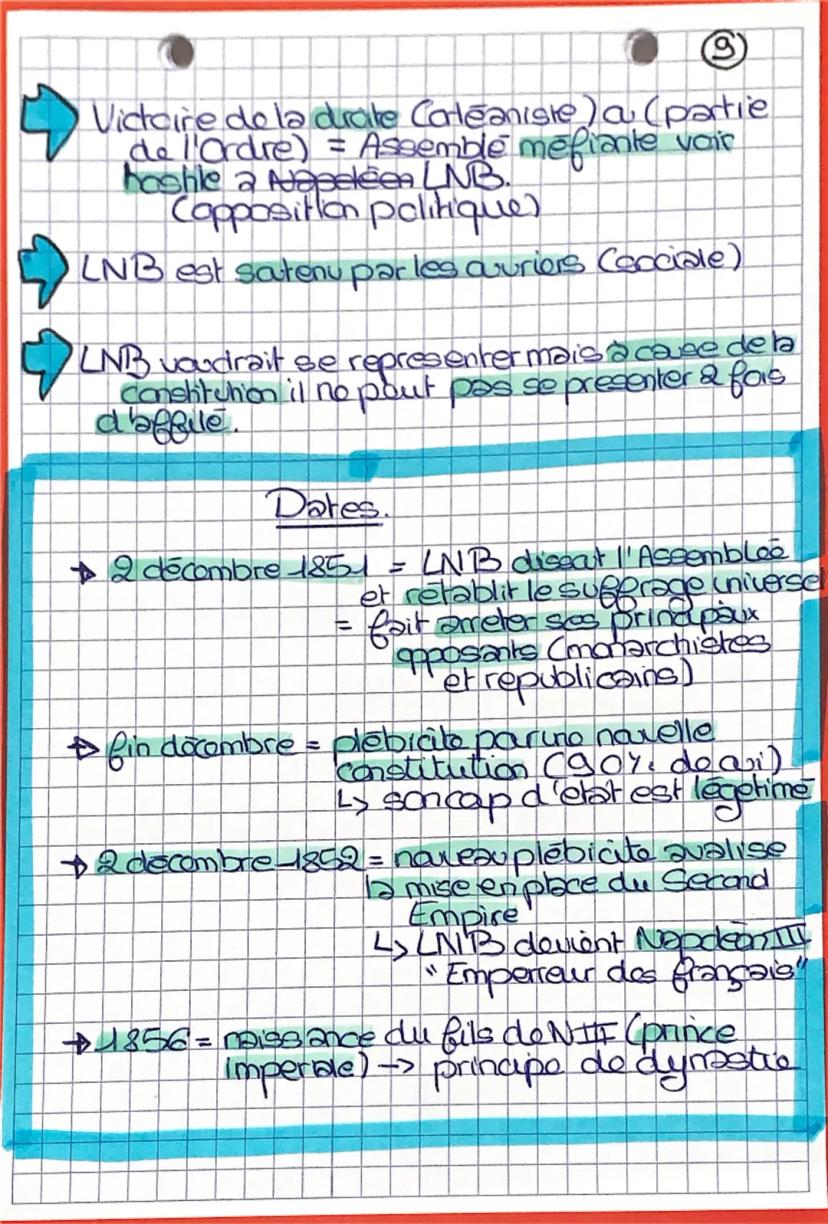 9
Victoire de la droite (orléaniste) a (partie
de l'ordre) = Assemblé méfiante voir
hostile à Napoléon LNB.
(opposition politique)
LNB est soutenu par les ouvriers (sociale)
LNB voudrait se representer mais à cause de la
constitution il ne peut pas se presenter 2 fois
d'affilé.
Dates.
→ 2 décembre 1851 = LNB dissout l'Assemblée
et rétablit le suffrage universel
= fait arreter ses principaux
opposants (monarchistes
et republicains)
→ fin décembre = plébicite par une nouvelle
constitution (90% de oui)
↳ son coup d'état est légetimé
→ 2 decembre 1852 = nouveau plébicite avalise
la mise en place du Second
Empire
↳ LNB devient Napoléon III
"Emperreur des français"
→ 1856 = naissance du fils de NIII (prince
imperiale) → principe de dynastie